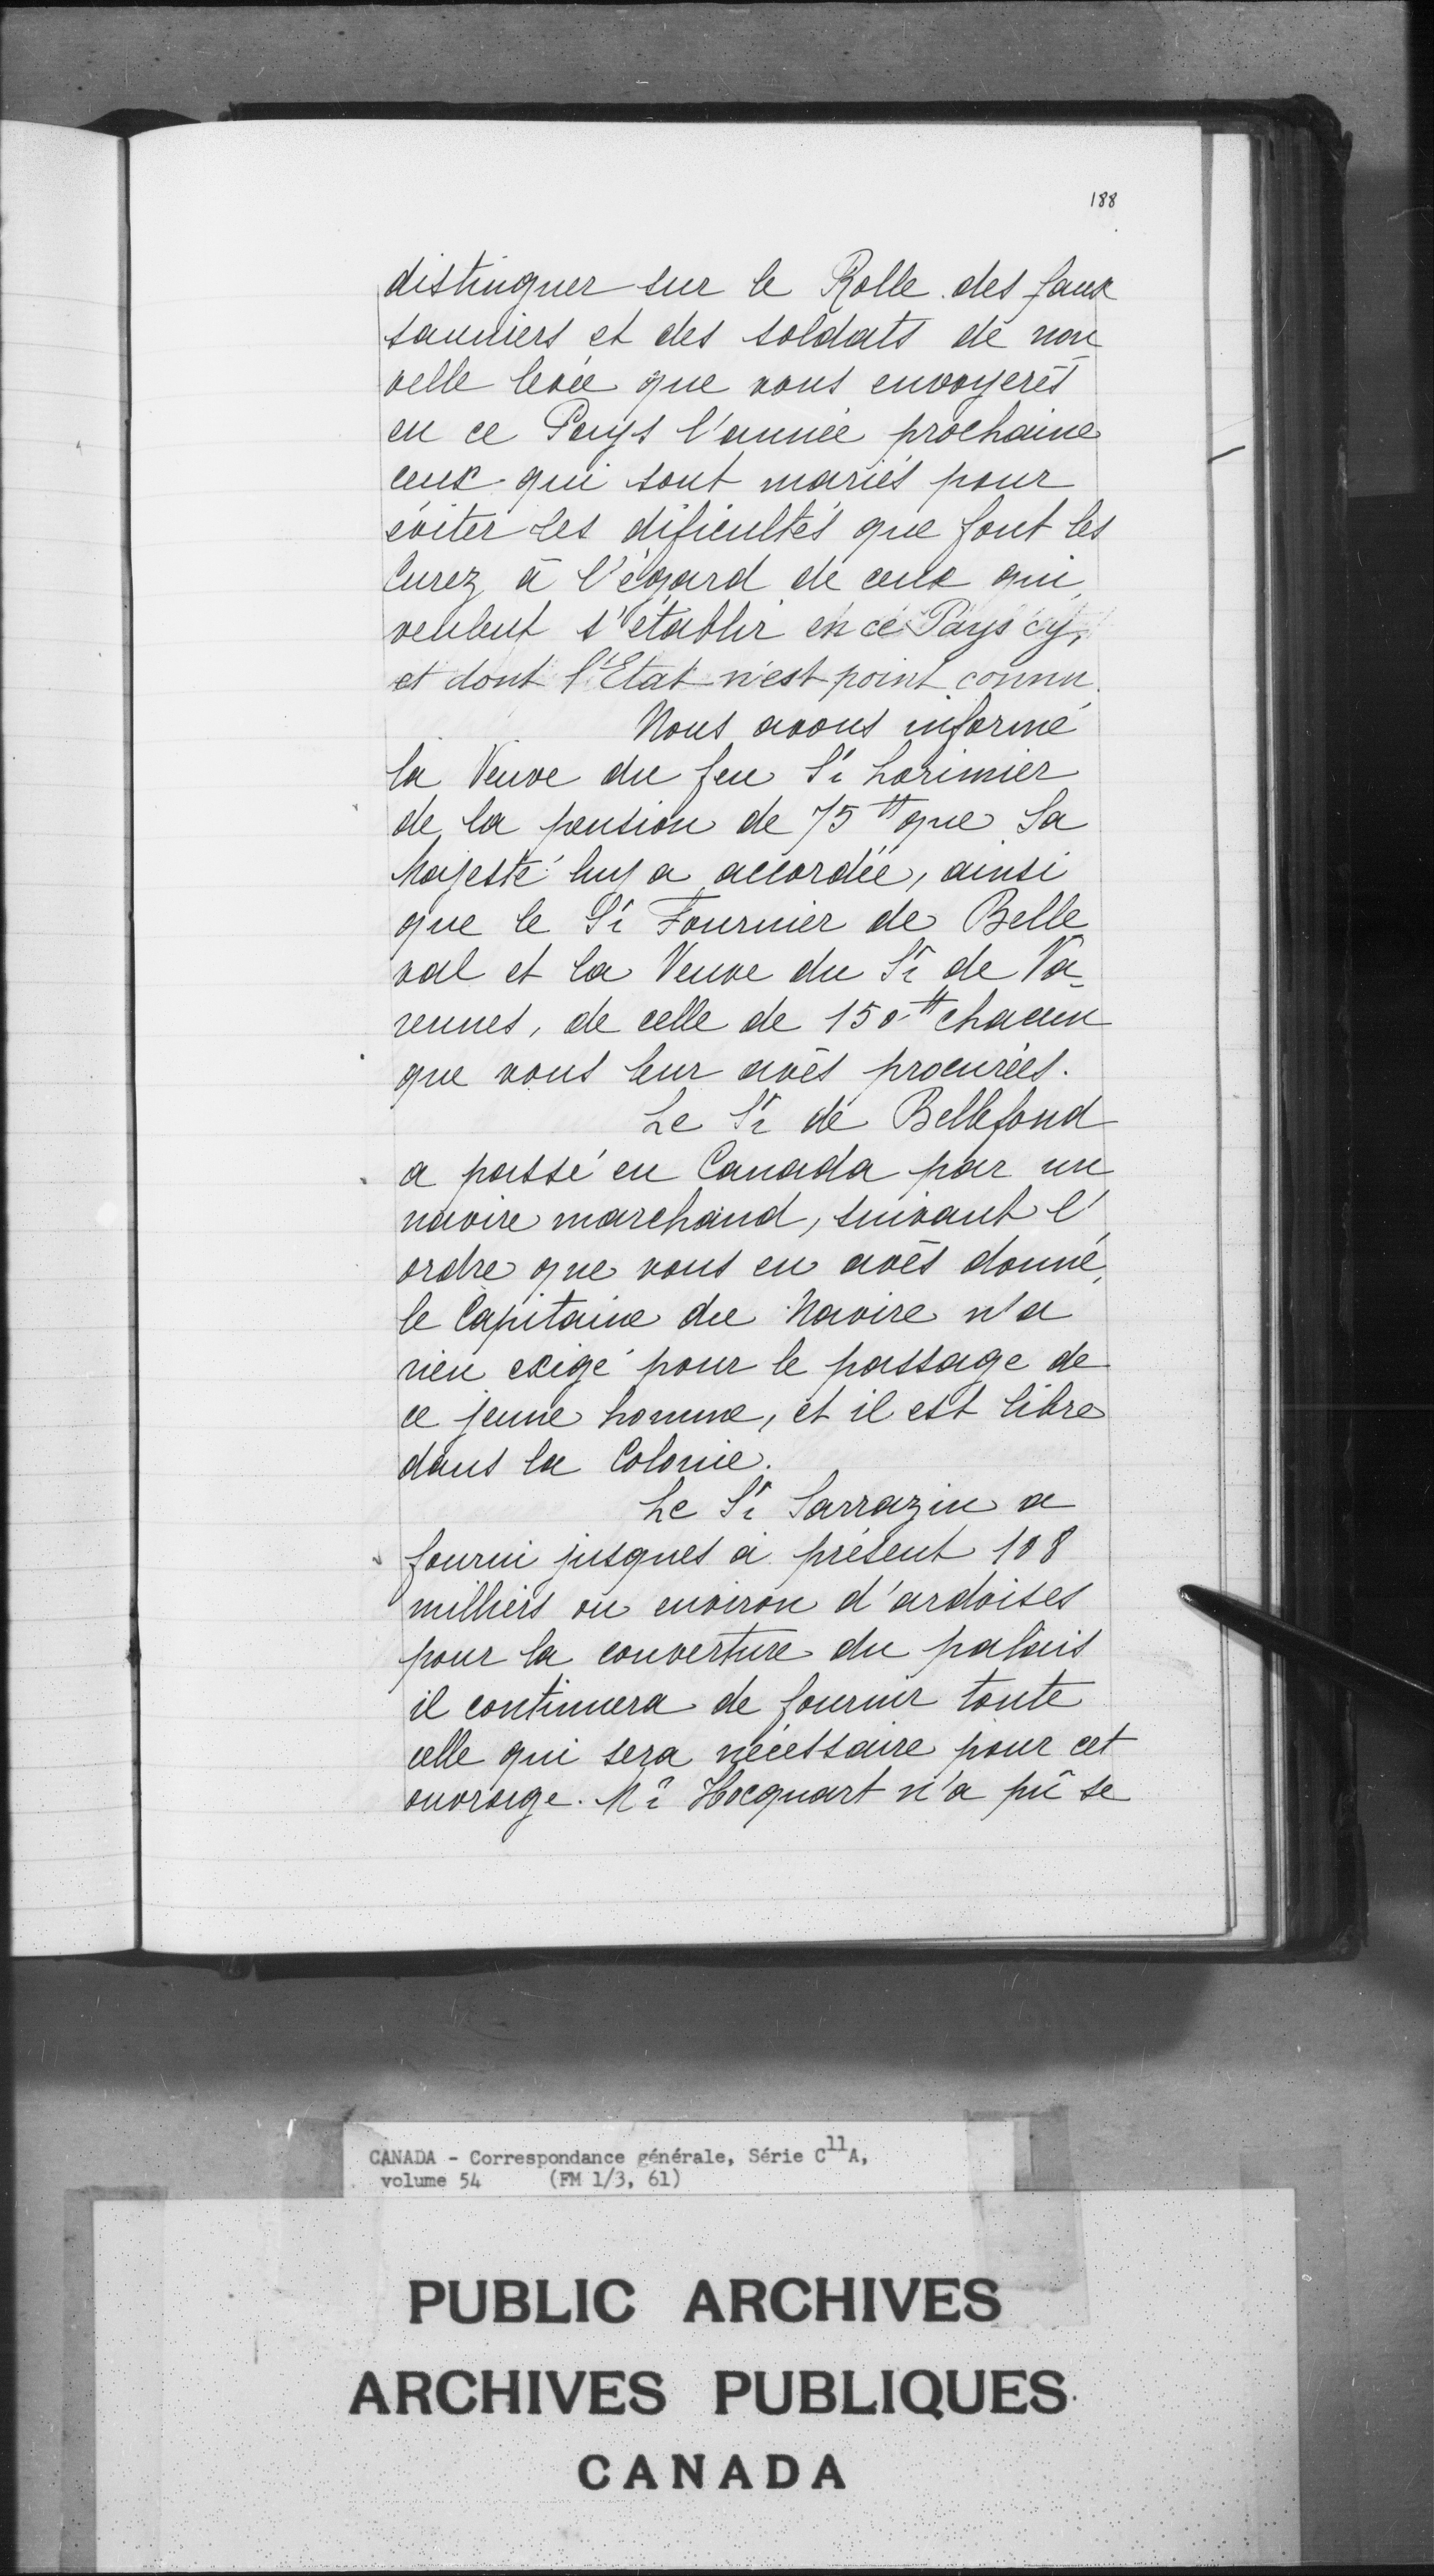 188
distinguer sur le Rolle des faux
sauniers et des soldats de nou
velle levée que vous envoyerés
en ce Pays l'année prochaine
ceux qui sont mariés pour
éviter les dificultés que font les
Curez à l'égard de ceux qui
veulent s'établir en ce Pays cy,
et dont l'Etat n'est point connu.
Nous avons informé
la Veuve du feu Sr Lorimier
de la pension de 75 tt que Sa
Majesté luy a accordée, ainsi
que le Sr Fournier de Belle
val et la Veuve du Sr de Va-
rennes, de celle de 150 tt chacun
que vous leur avés procurées.
Le Sr de Bellefond
a passé en Canada par un
navire marchand, suivant l'
ordre que vous en avés donné,
le Capitaine du Navire n'a
rien exigé pour le passage de
ce jeune homme, et il est libre
dans la Colonie.
Le Sr Sarrazin a
fourni jusques à présent 108
milliers ou environ d'ardoises
pour la couverture du palais
il continuera de fournir toute
celle qui sera nécessaire pour cet
ouvrage. Mr Hocquart n'a pû se
CANADA - Correspondance générale, Série C11A,
volume 54 (FM 1/3, 61)
PUBLIC ARCHIVES
ARCHIVES PUBLIQUES
CANADA